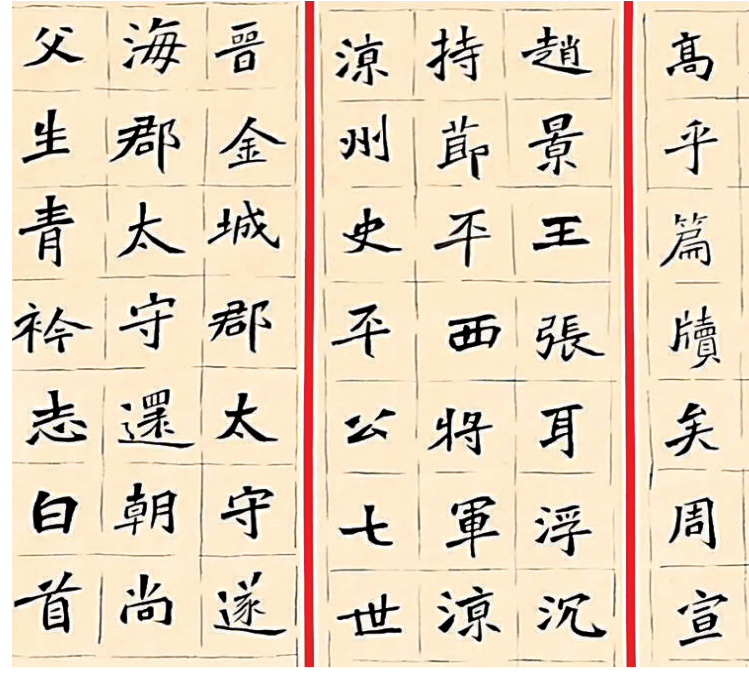 高乎篇牘矣周宣
趙景王張耳浮沉
持節平西將軍涼
涼州史平公七世
晉金城郡太守遂
海郡太守還朝尚
父生青衿志白首